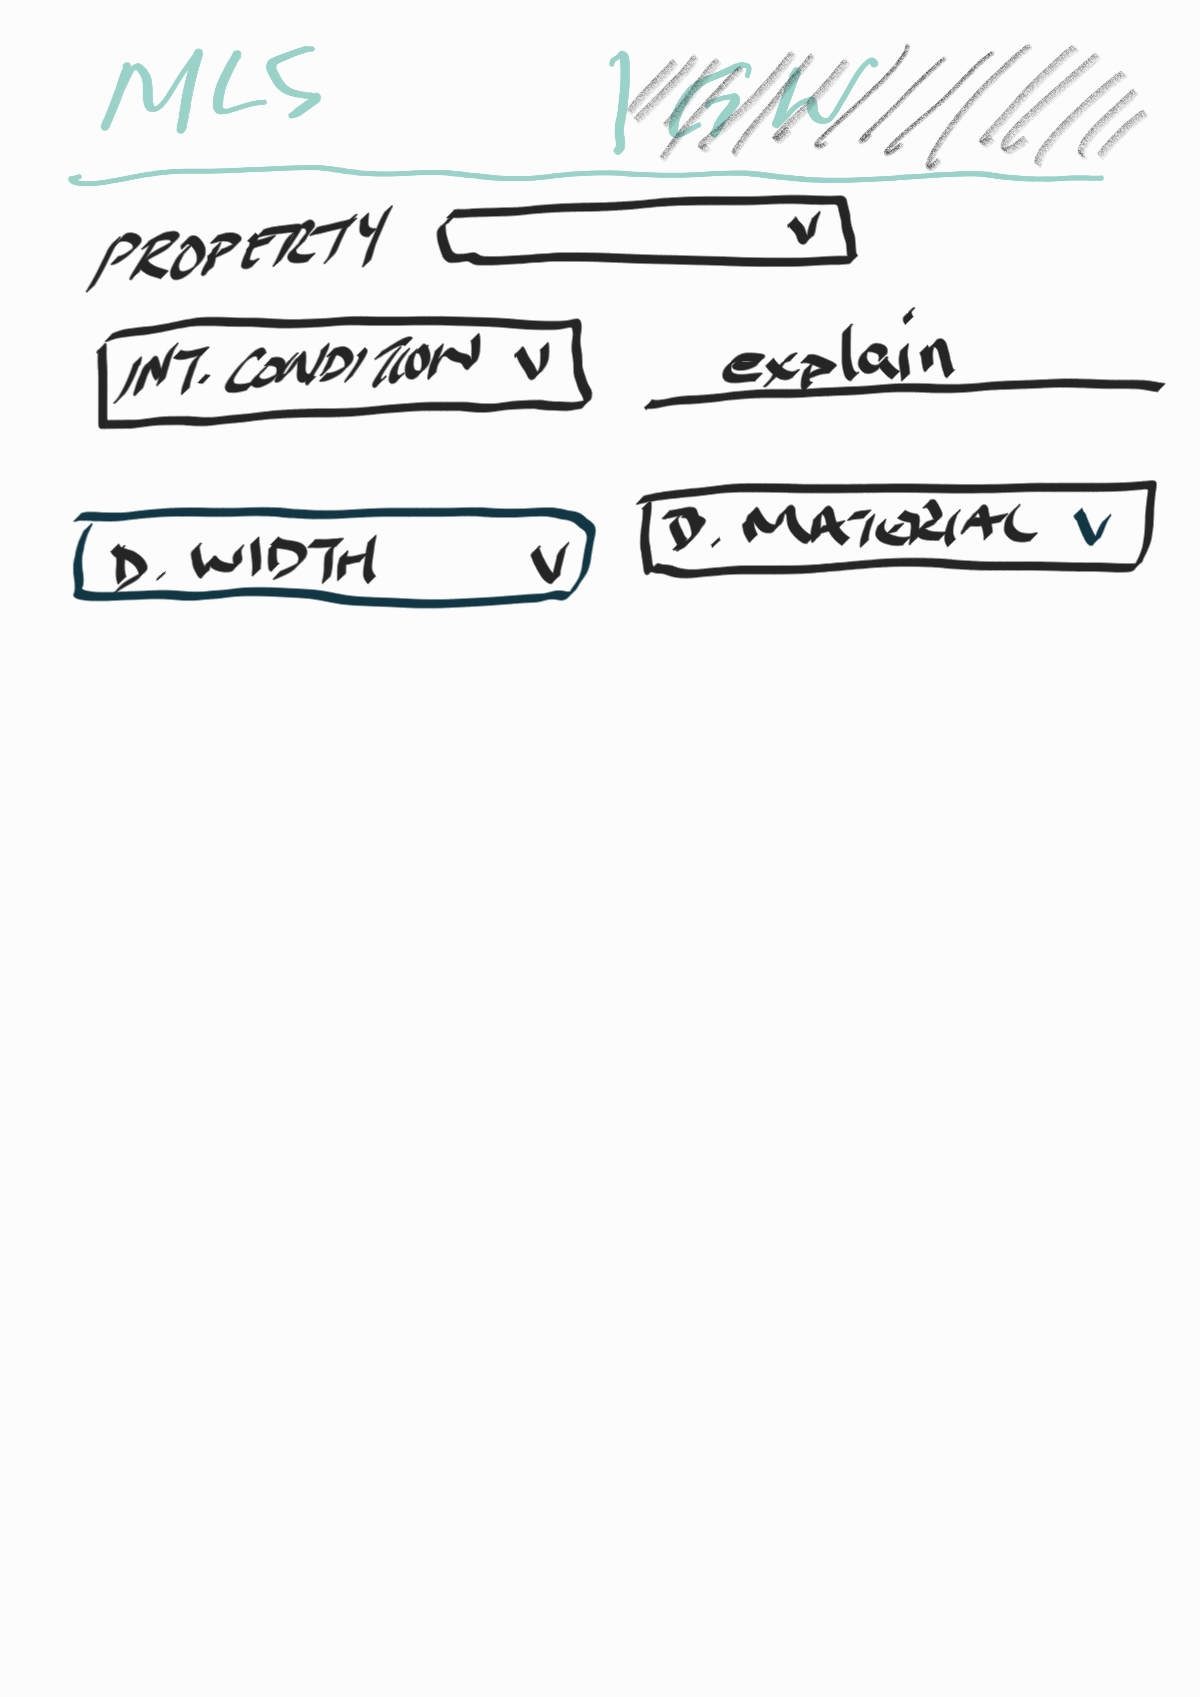 MLS
PROPERTY V
INT. CONDITION V explain
D. WIDTH V D. MATERIAL V